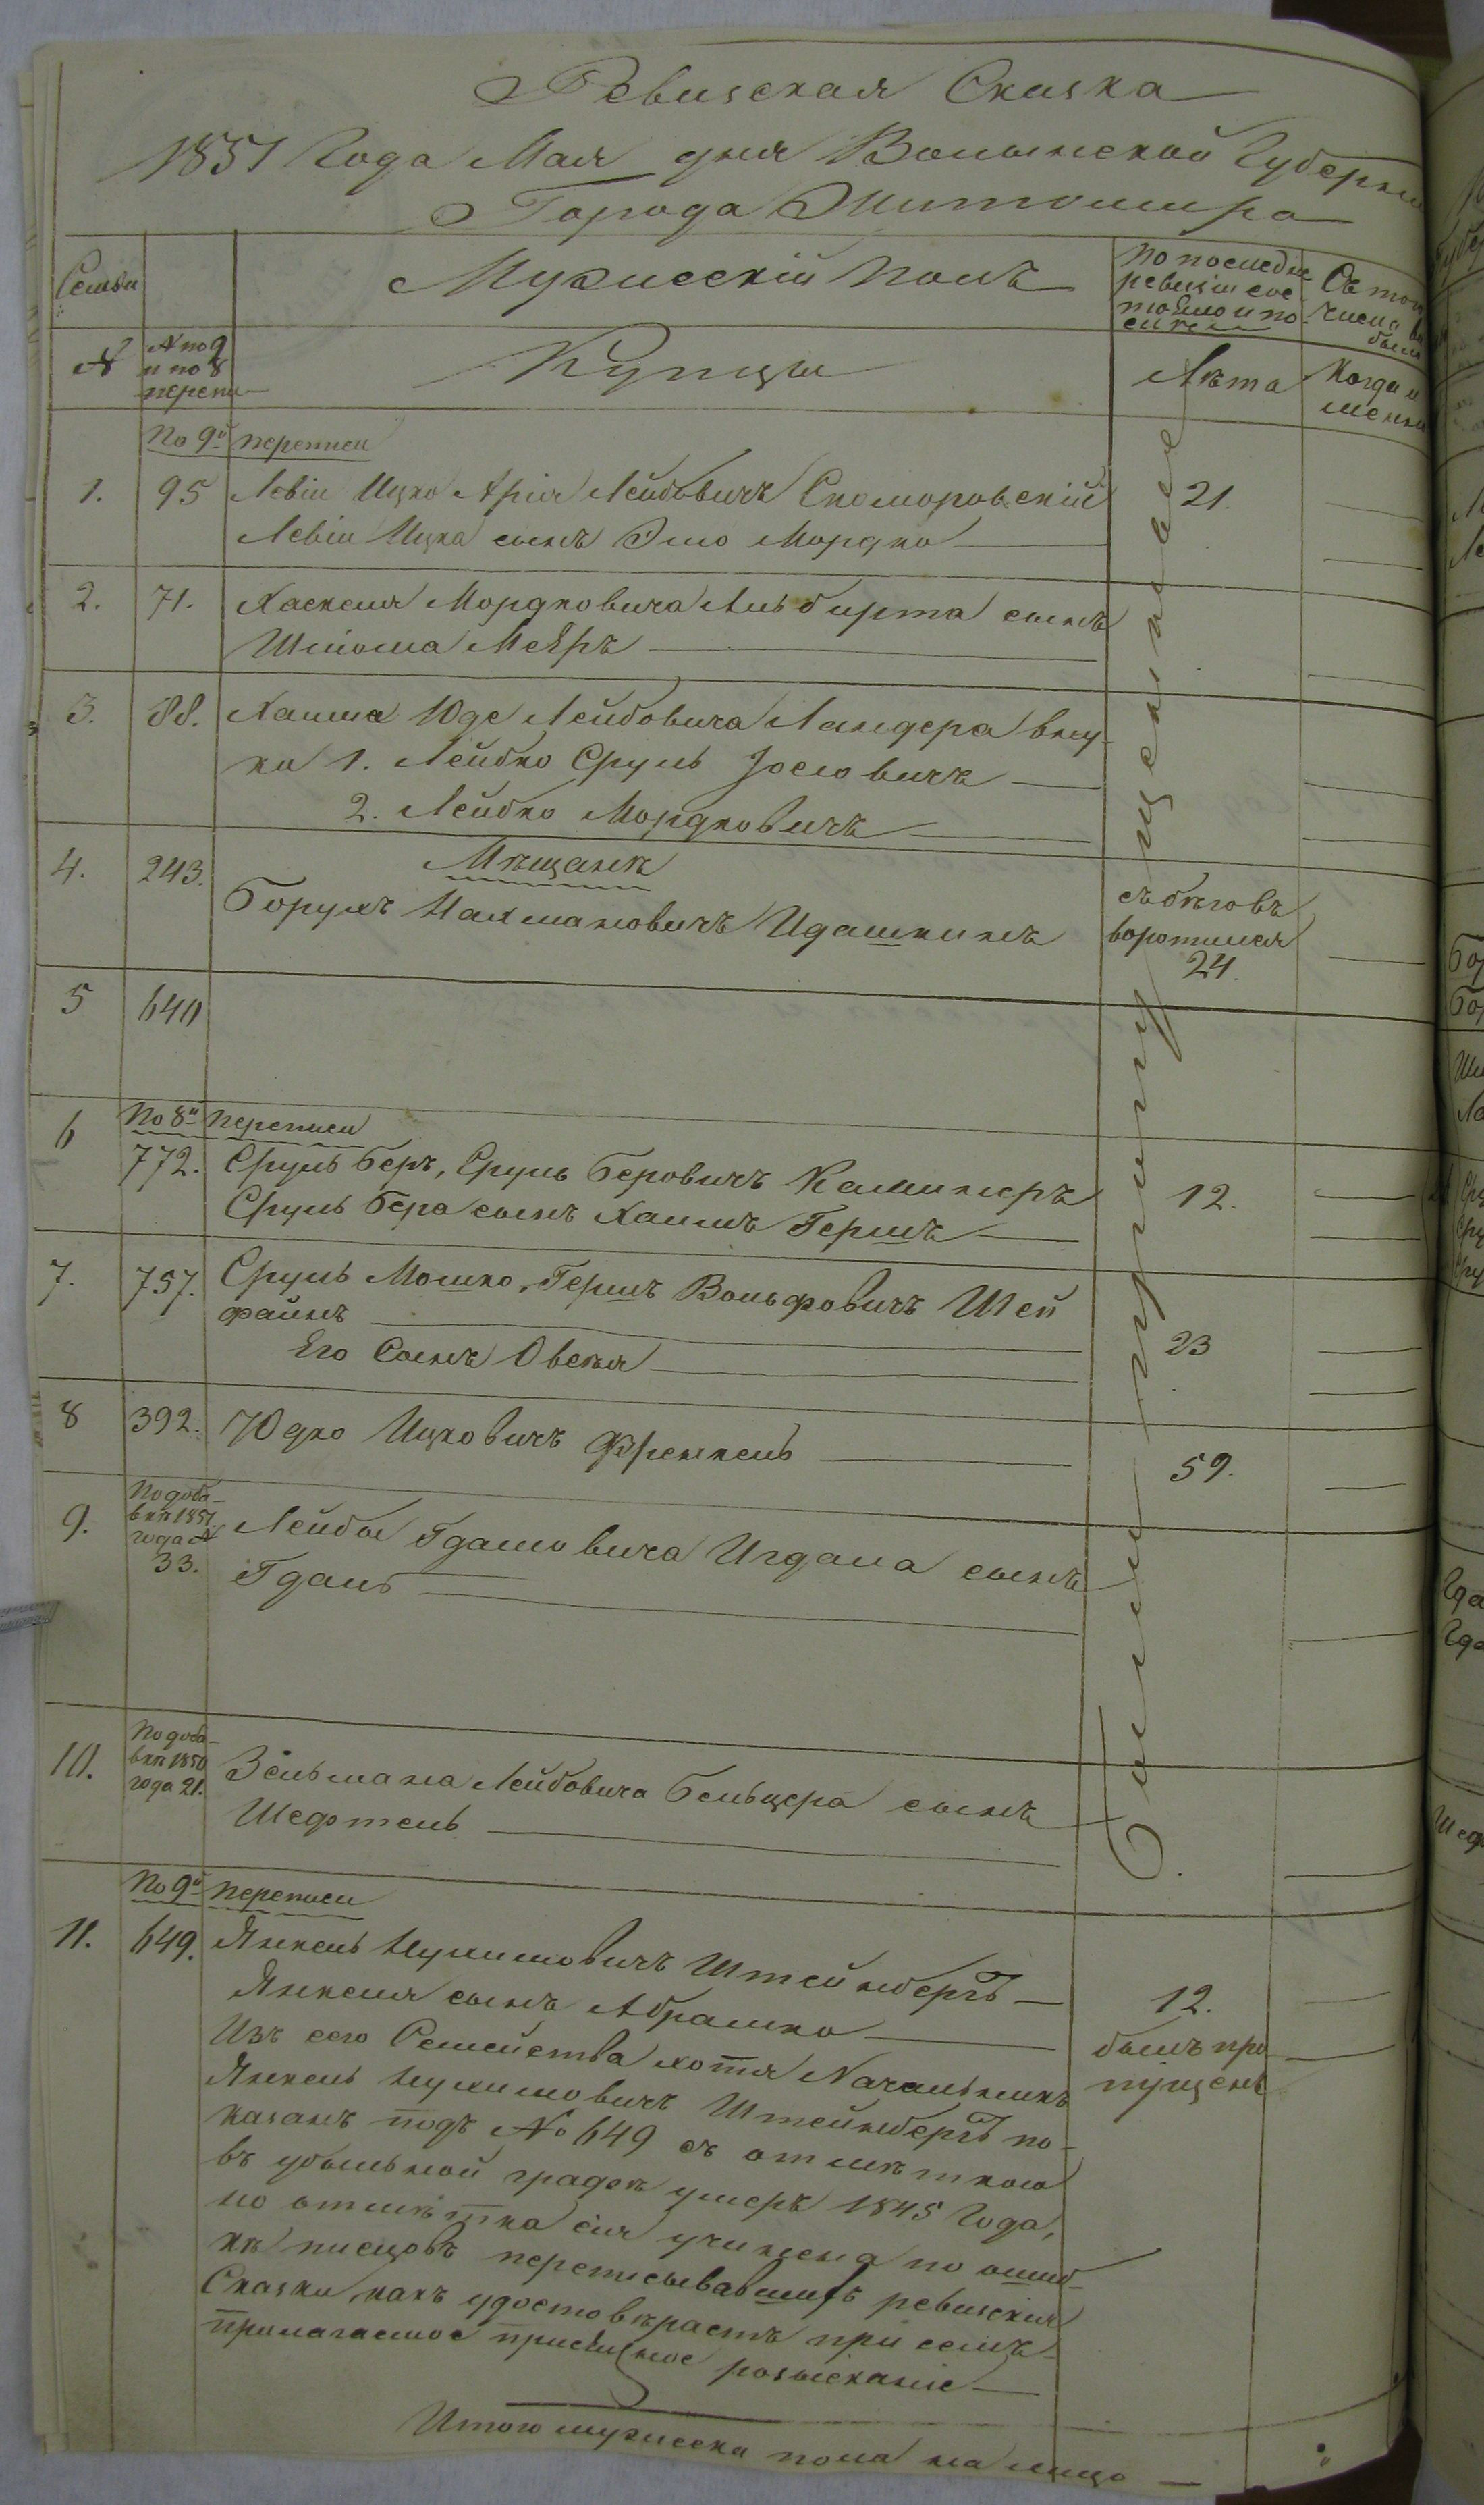 Ревизская Сказка
1851 Года Мая дня Волынской Губерніи
Города Житомира
Семьи
Мужескій полъ
По последне
ревизіи сос
тояло и по
сле
Съ того
числа вы
было
№
№ по 9
и по 8
перепи
Купцы
Лѣта
Когда и
менно
По 9й переписи
1. 95 Левіи Ицко Арія Лейбовичъ Скоморовскій 21.
Левіи Ицка сынъ Эло Мордко
2. 71. Хаскеля Мордковича Альбирта сынъ
Шліома Меѣръ
3. 88. Хаима Юде Лейбовича Ландера вну
ки 1. Лейбко Сруль Іосіовичъ
2. Лейбко Мордковичъ
Мѣщанѣ
4. 243. Борухъ Нахмановичъ Идашкинъ
съ бѣговъ
воротился
24.
5 640
По 8й переписи
6 772. Сруль Беръ, Сруль Беровичъ Калинеръ 12.
Сруль Бера сынъ Хаимъ Гершъ
7. 757. Сруль Мошко, Гершъ Вольфовичъ Шей
файнъ 23
Его Сынъ Овсѣя
8 392. Юдко Ицковичъ Френкель 59.
9. По доба
вки 1851.
года №
33.
Лейбы Гдаловича Игдала сынъ
Гдаль
10. По доба
вки 1850
года 21.
Зельмана Лейбовича Бельцера сынъ
Шефтель
Были пропущенные
По 9й переписи
11. 649. Янкель Нухимовичъ Штейнбергъ 12.
Янкеля сынъ Абрамко
былъ про
пущенъ
Изъ сего Семейства хотя Начальникъ
Янкель Нухимовичъ Штейнбергъ по
казанъ подъ № 649 съ отмѣткою
въ убыльной графѣ умеръ 1845 Года,
но отмѣтка сія учинена по ошиб
кѣ писцовъ переписывавшихъ ревизскія
Сказки, какъ удостовѣраетъ при семъ
прилагаемое присяжное розысканіе
Итого мужеска пола на лицо